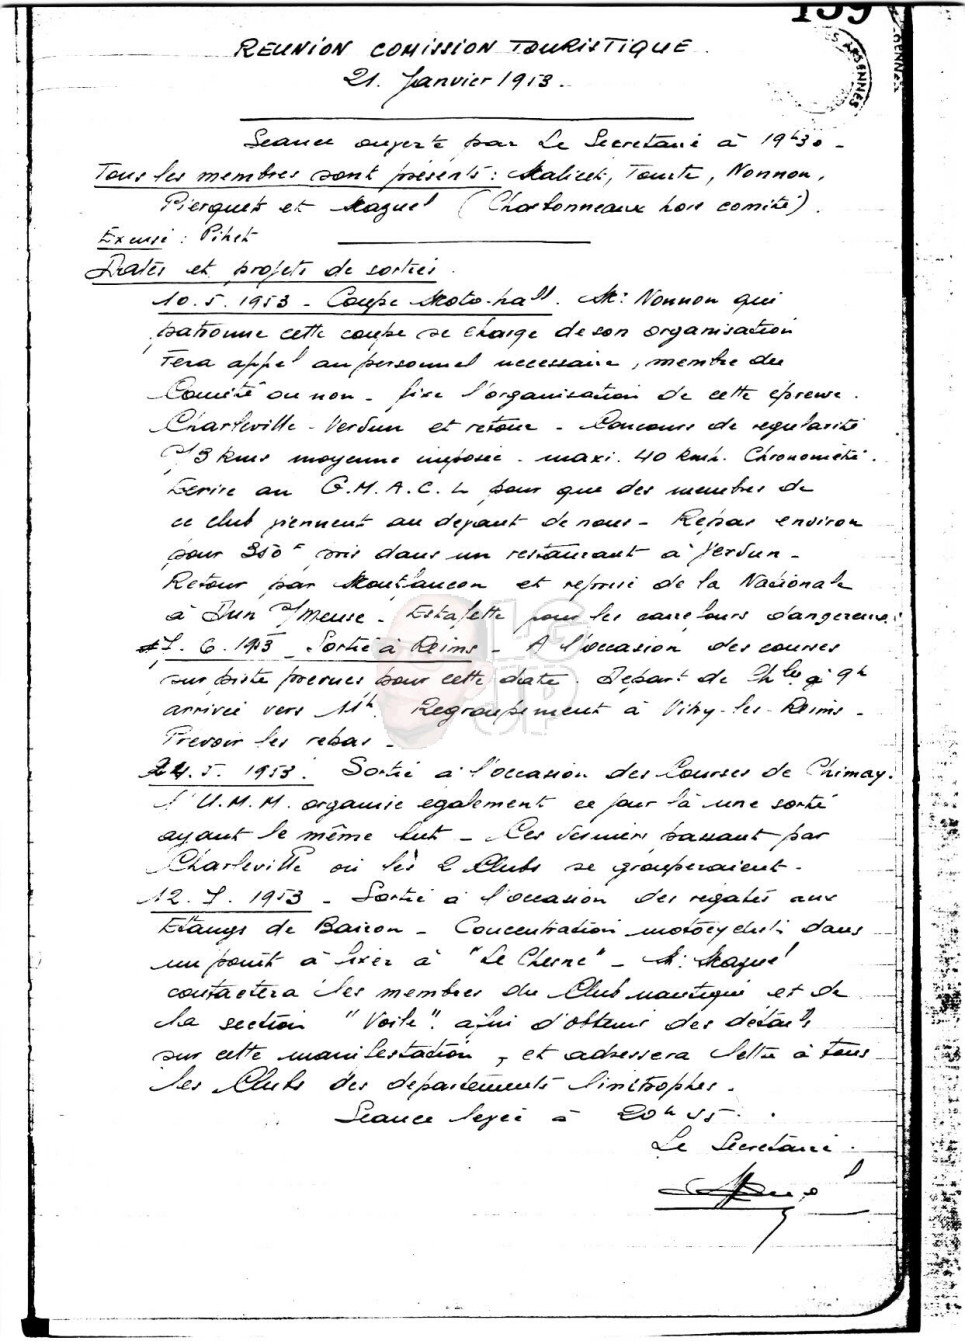 139
REUNION COMISSION TOURISTIQUE.
21. Janvier 1953.
Seance ouverte par Le Secretaire à 19h30 -
Tous les membres sont présents : Malicet, Tourte, Nonnon,
Pierquet et Maguel (Charbonneaux hors comité).
Excusé : Pihet
Dates et projets de sorties.
10. 5. 1953 - Coupe Moto-hall. Mr Nonnon qui
patronne cette coupe se charge de son organisation
Fera appel au personnel necessaire, membre du
Comité ou non - fixe l'organisation de cette épreuve.
Charleville - Verdun et retour - Concours de regularité
s/3 kms moyenne imposée. maxi. 40 kmh. Chronométré.
Ecrire au G.M.A.C.L pour que des membres de
ce club viennent au devant de nous - Repas environ
pour 350f pris dans un restaurant à Verdun -
Retour par Montfaucon et reprise de la Nationale
à Dun s/Meuse - Estafette pour les carrefours dangereux.
7. 6. 1953 - Sortie à Reims - A l'occasion des courses
sur piste prevues pour cette date. Départ de Chlle à 9h
arrivée vers 11h. Regroupement à Vitry-les-Reims -
Prevoir les repas -
24. 5. 1953. Sortie à l'occasion des Courses de Chimay.
l'U.M.M. organise egalement ce jour là une sortie
ayant le même but - Ces derniers passant par
Charleville où les 2 Clubs se grouperaient -
12. 7. 1953 - Sortie à l'occasion des regates aux
Etangs de Bairon - Concentration motocycliste dans
un point à fixer à "Le Chesne" - Mr Maguel
contactera les membres du Club nautique et de
la section "Voile" afin d'obtenir des details
sur cette manifestation, et adressera lettre à tous
les Clubs des departements limitrophes -
Seance levée à 20h55.
Le Secretaire.
LG
JP